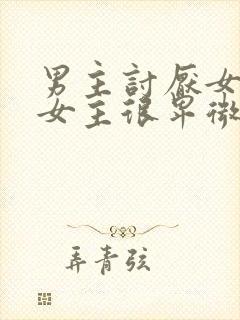 男主討厭女
女主很卑微
弄青弦